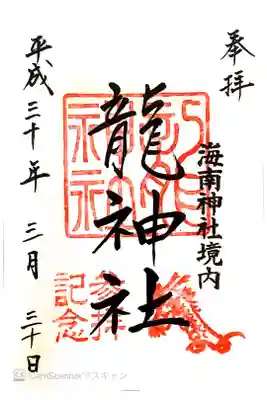 奉拝
海南神社境内
龍神社
参拝
記念
平成三十年三月三十日
CamScannerでスキャン